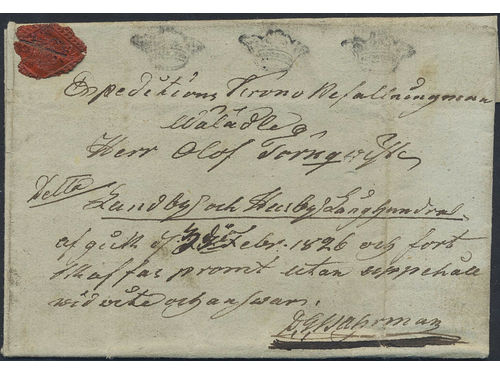 Expeditions Krono Befallningsman
Wälädle
Herr Olof Törnqvist
Detta
Lundby och Husby Långhundra
afgått d 3 Febr. 1826 och fort
skaffas promt utan uppehåll
wid wite och answar.